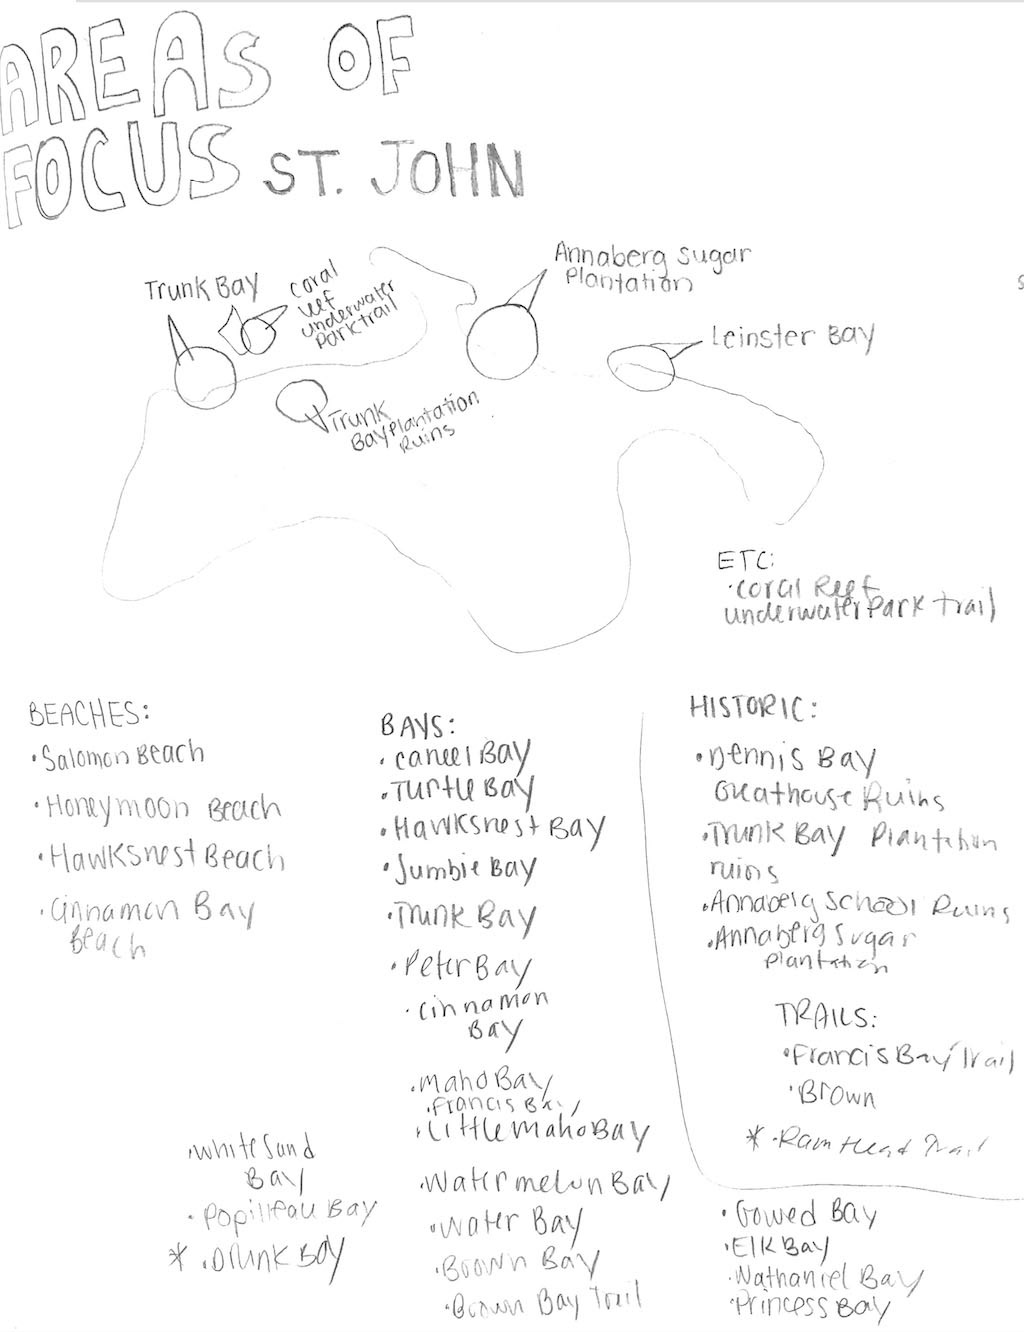 AREAS OF
FOCUS ST. JOHN
Trunk Bay
coral
reef
underwater
Park trail
Annaberg Sugar
Plantation
Leinster Bay
Trunk
Bay Plantation
Ruins
ETC:
·Coral Reef
underwater Park trail
BEACHES:
·Salomon Beach
·Honeymoon Beach
·Hawksnest Beach
·Cinnamon Bay
Beach
BAYS:
·Caneel Bay
·Turtle Bay
·Hawksnest Bay
·Jumbie Bay
·Trunk Bay
·Peter Bay
·Cinnamon
Bay
·Maho Bay
·Francis Bay
·Little Maho Bay
·Watermelon Bay
·Water Bay
·Brown Bay
·Brown Bay Trail
·White Sand
Bay
·Popilleau Bay
* ·Drunk Bay
HISTORIC:
·Dennis Bay
Greathouse Ruins
·Trunk Bay Plantation
ruins
·Annaberg School Ruins
·Annaberg Sugar
Plantation
TRAILS:
·Francis Bay Trail
·Brown
* ·Ram Head Trail
·Gowed Bay
·Elk Bay
·Nathaniel Bay
·Princess Bay